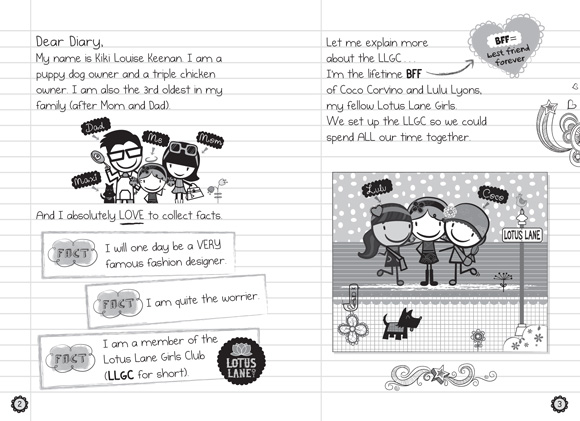 Dear Diary,
My name is Kiki Louise Keenan. I am a
puppy dog owner and a triple chicken
owner. I am also the 3rd oldest in my
family (after Mom and Dad).
Dad
Me
Mom
Maxi
And I absolutely LOVE to collect facts.
FACT
I will one day be a VERY
famous fashion designer.
FACT
I am quite the worrier.
FACT
I am a member of the
Lotus Lane Girls Club
(LLGC for short).
LOTUS
LANE
2
Let me explain more
about the LLGC . . .
I'm the lifetime BFF
of Coco Corvino and Lulu Lyons,
my fellow Lotus Lane Girls.
We set up the LLGC so we could
spend ALL our time together.
BFF =
best friend
forever
Lulu
Coco
LOTUS LANE
3